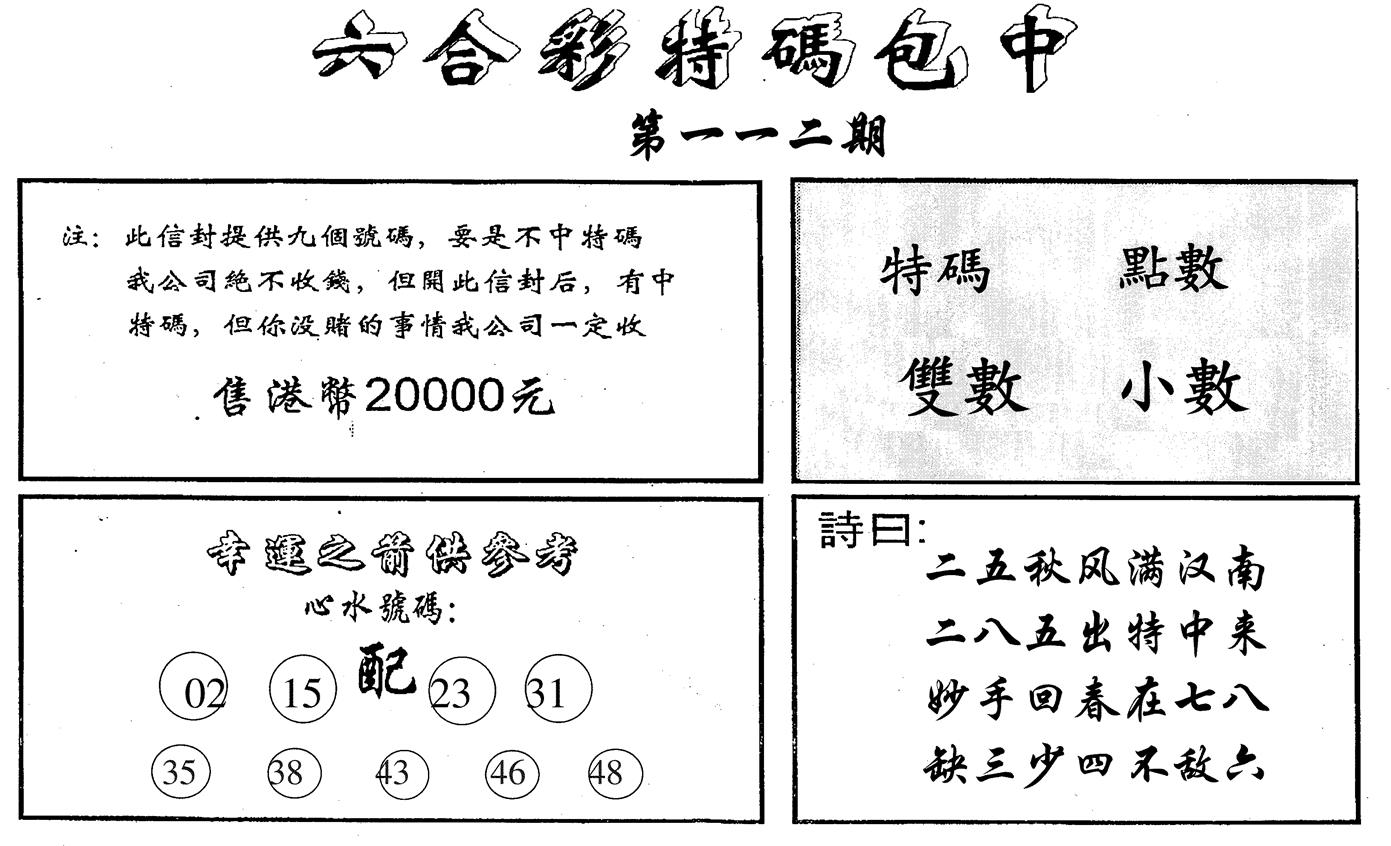 六合彩特碼包中
第一一二期
注：此信封提供九個號碼，要是不中特碼
我公司絕不收錢，但開此信封后，有中
特碼，但你没賭的事情我公司一定收
售港幣20000元
特碼 點數
雙數 小數
幸運之箭供參考
心水號碼：
02 15 配 23 31
35 38 43 46 48
詩曰：
二五秋风满汉南
二八五出特中来
妙手回春在七八
缺三少四不敌六